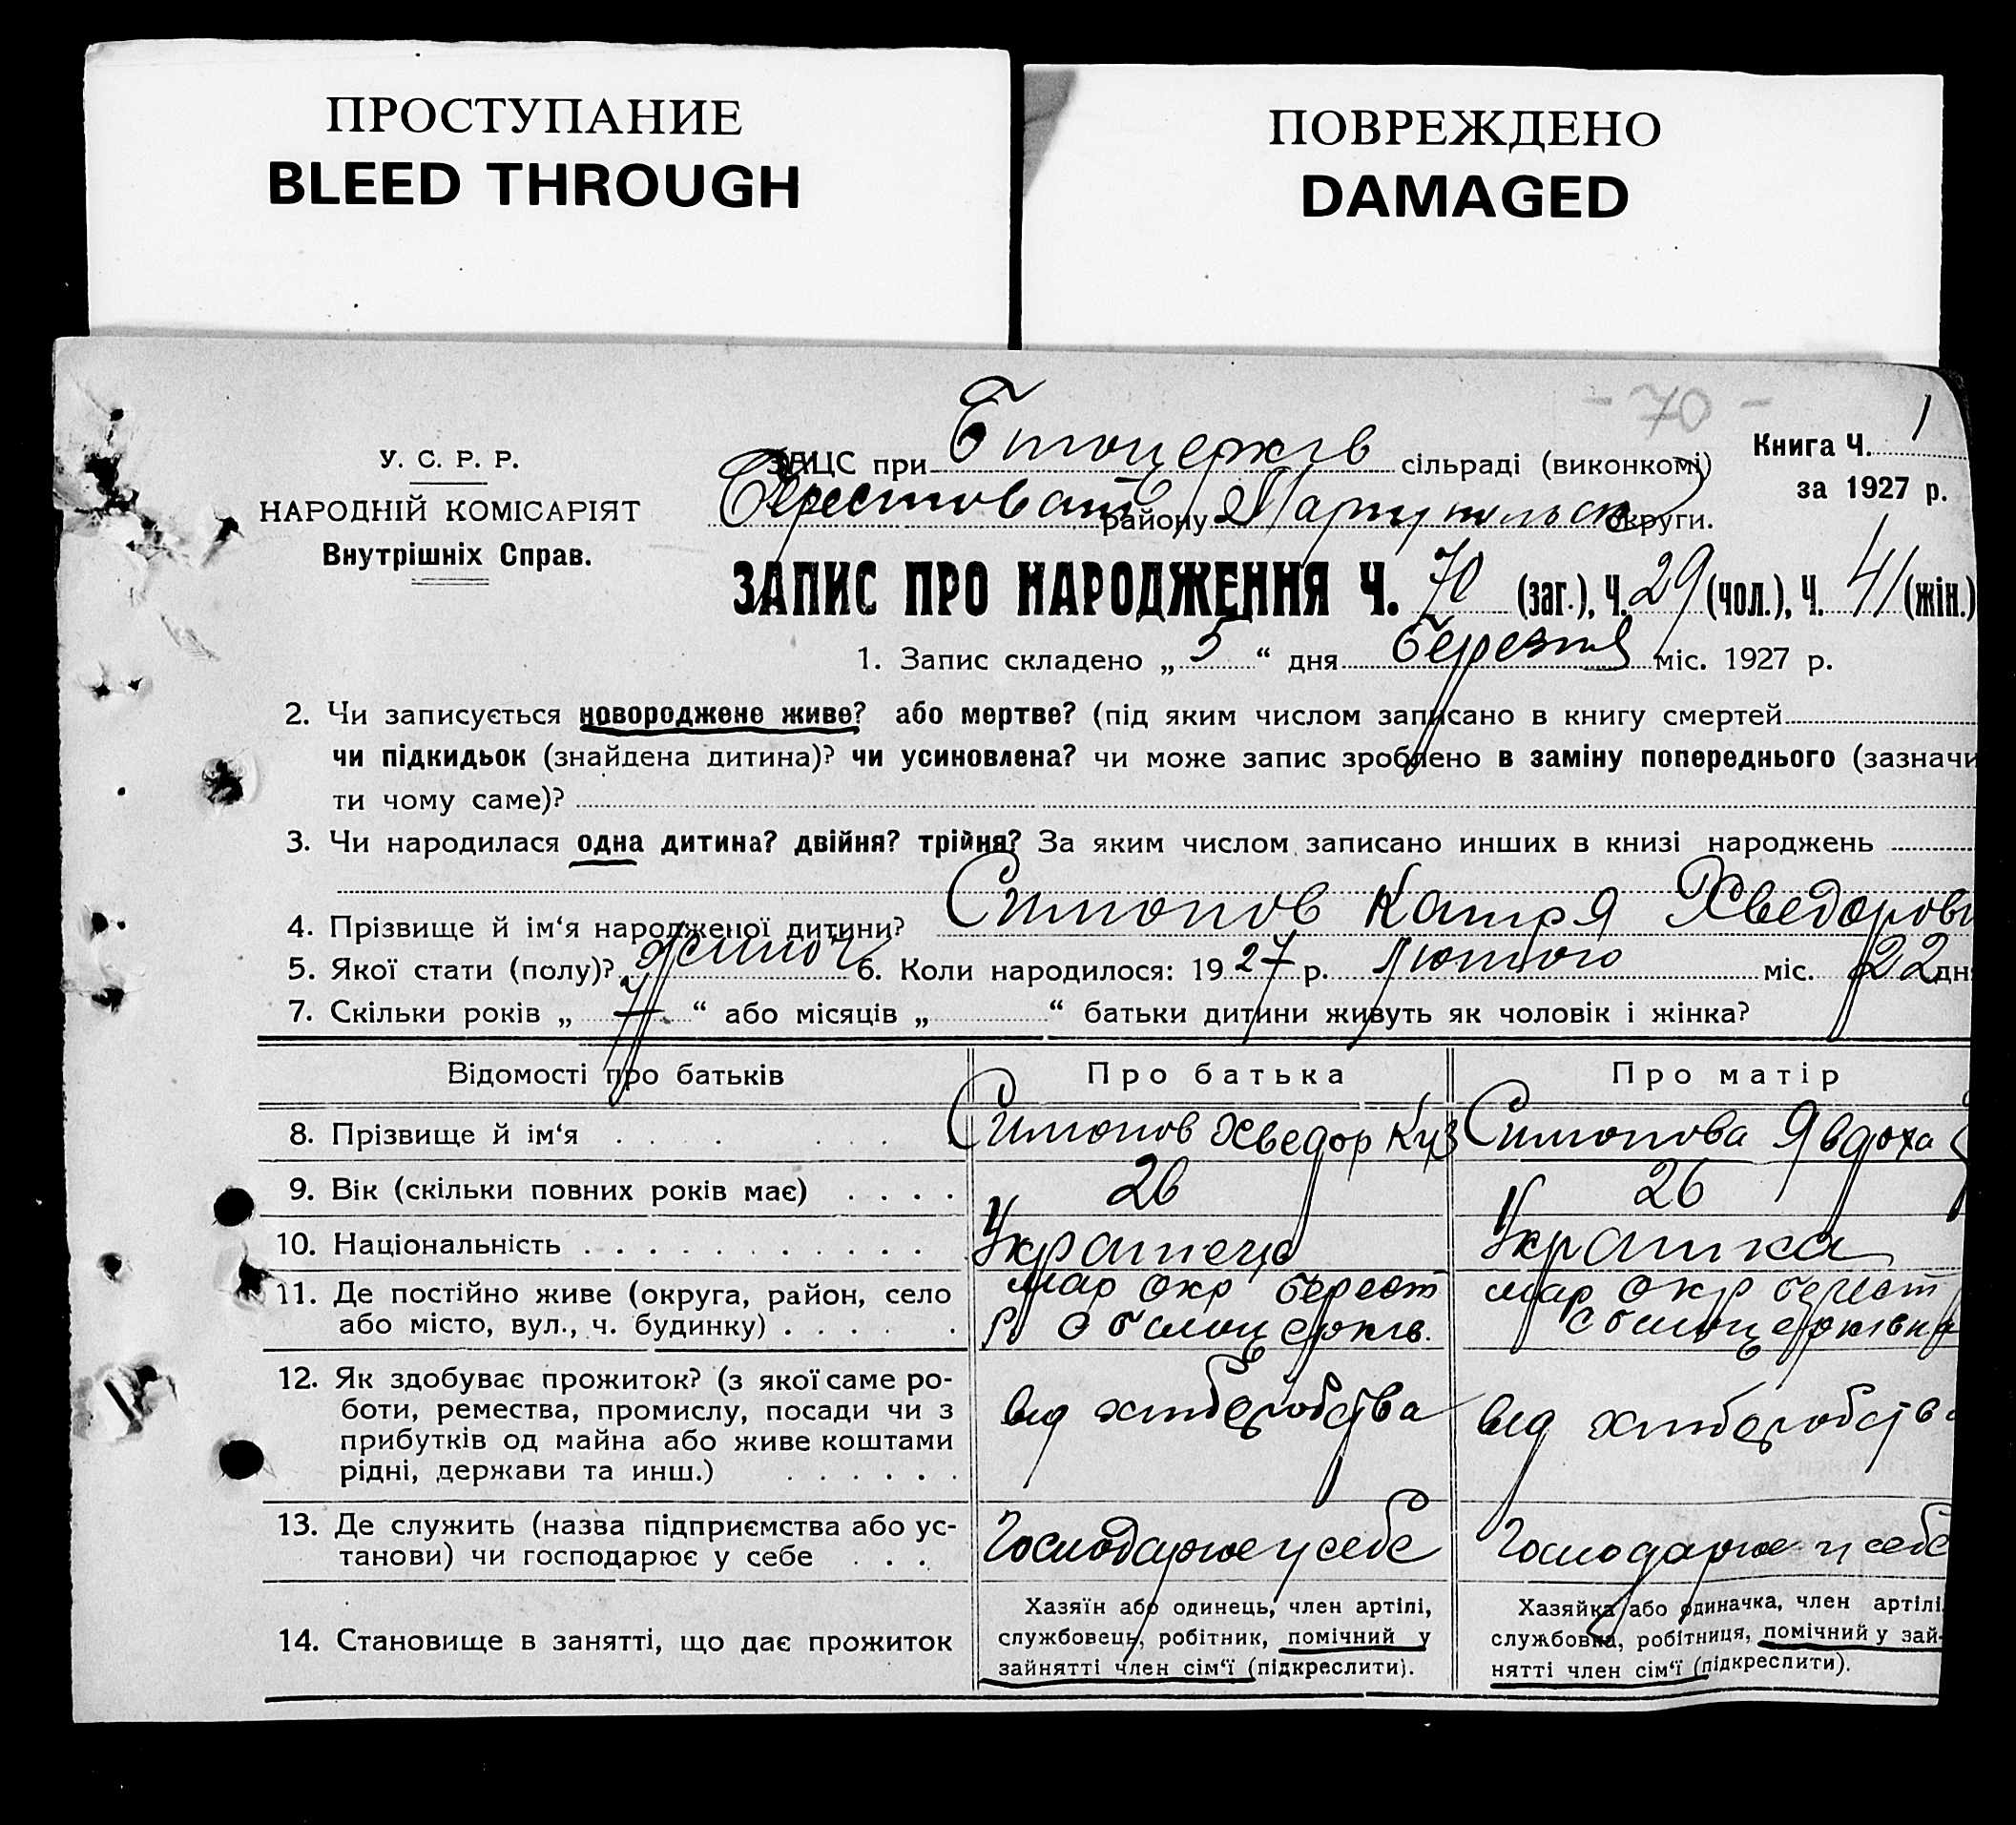 ПРОСТУПАНИЕ
BLEED THROUGH
ПОВРЕЖДЕНО
DAMAGED
- 70 -
У. С. Р. Р.
НАРОДНІЙ КОМІСАРІЯТ
Внутрішніх Справ.
Книга Ч. 1
за 1927 р.
ЗАЦС при Білоцерків сільраді (виконкомі)
району Маріупольськ округи.
ЗАПИС ПРО НАРОДЖЕННЯ Ч. 70 (заг.), Ч. 29 (чол.), Ч. 41 (жін.)
1. Запис складено „ 5 “ дня березня міс. 1927 р.
2. Чи записується новороджене живе? або мертве? (під яким числом записано в книгу смертей
чи підкидьок (знайдена дитина)? чи усиновлена? чи може запис зроблено в заміну попереднього (зазначи
ти чому саме)?
3. Чи народилася одна дитина? двійня? трійня? За яким числом записано инших в книзі народжень
4. Прізвище й ім‘я народженої дитини? Симонов Катря Хведоров
5. Якої стати (полу)? жіноч 6. Коли народилося: 1927 р. лютого міс. 22 дн
7. Скільки років „ 7 “ або місяців „ “ батьки дитини живуть як чоловік і жінка?
Відомості про батьків Про батька Про матір
8. Прізвище й ім‘я Симонов Хведор Куз Симонова Явдоха
9. Вік (скільки повних років має) 26 26
10. Національність Українець Українка
11. Де постійно живе (округа, район, село мар окр берест мар окр берест
або місто, вул., ч. будинку) р с білоцерків. с білоцерківка
12. Як здобуває прожиток? (з якої саме ро-
боти, ремества, промислу, посади чи з від хліборобства від хліборобств
прибутків од майна або живе коштами
рідні, держави та инш.)
13. Де служить (назва підприємства або ус- Господарює у себе Господарює у себе
танови) чи господарює у себе
14. Становище в занятті, що дає прожиток
Хазяїн або одинець, член артілі,
службовець, робітник, помічний у
зайнятті член сім‘ї (підкреслити).
Хазяйка або одиначка, член артілі,
службовка, робітниця, помічний у зай-
нятті член сім‘ї (підкреслити).